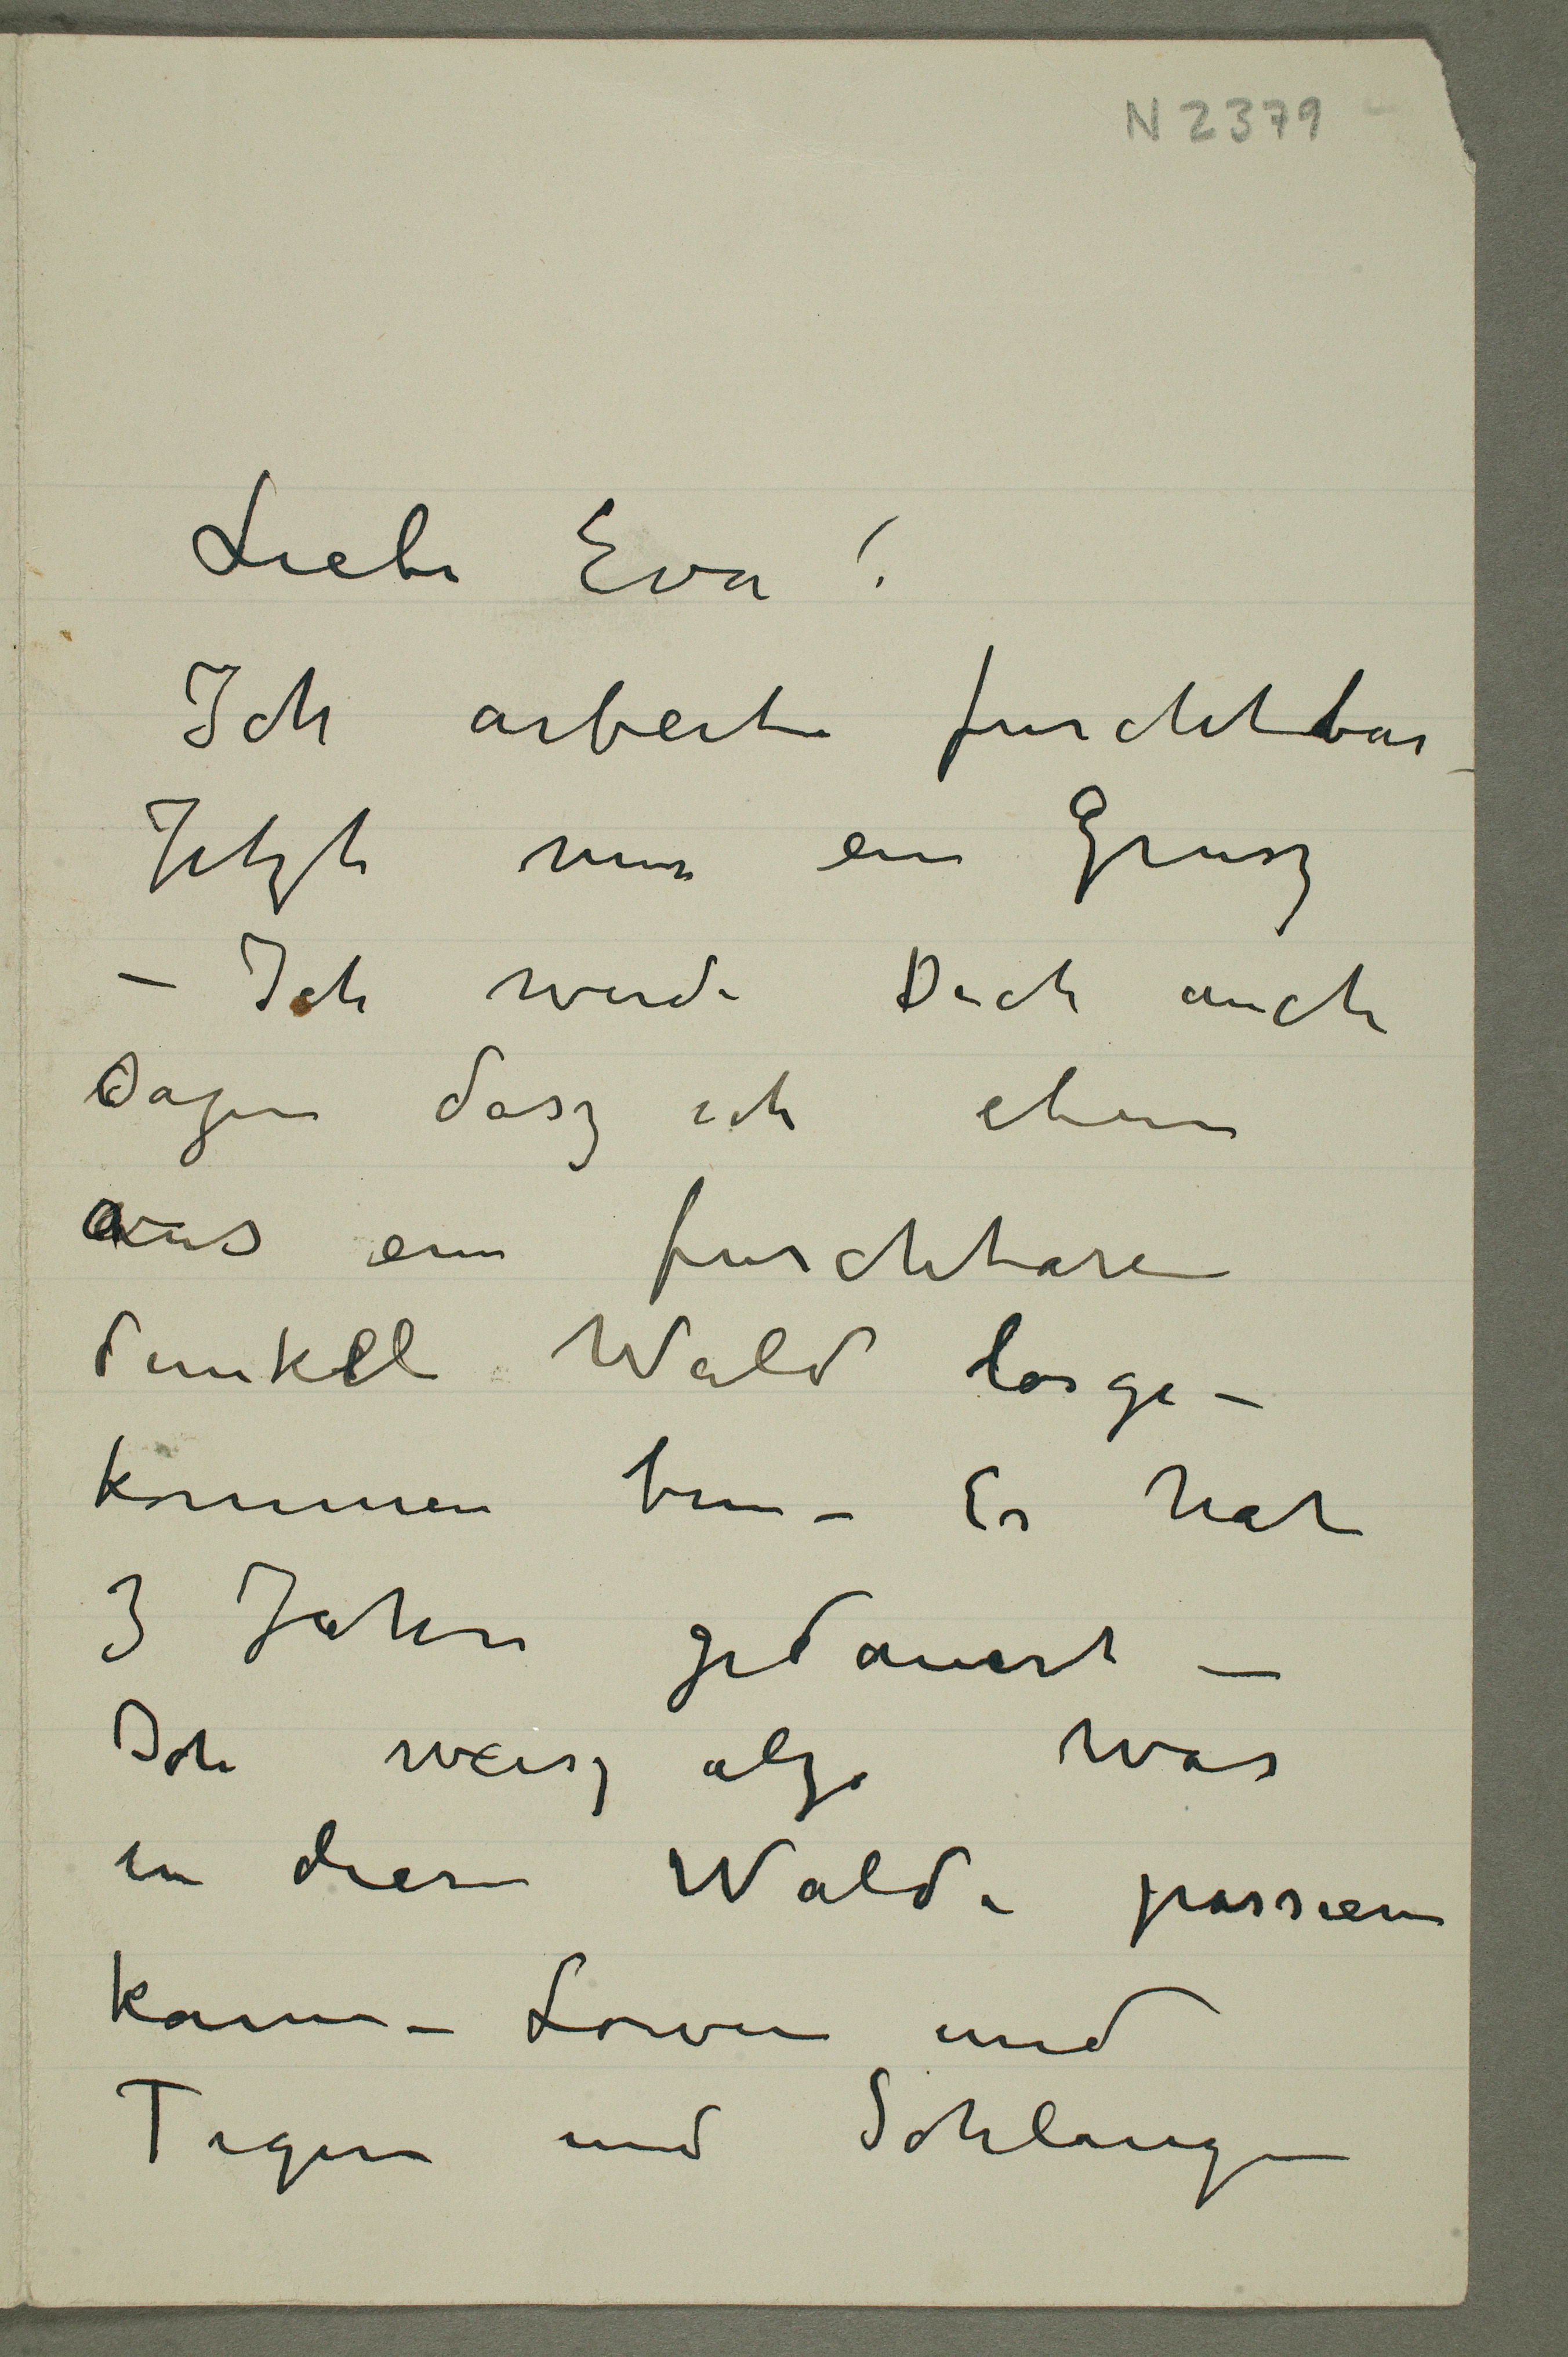 N 2379
Liebe Eva!
Ich arbeite furchtbar –
Jetzt nur ein Grusz
– Ich werde Dich auch
sagen dasz ich eben
aus ein furchtbaren
dunkel Wald losge–
kommen bin – Es hat
3 Jahre gedauert –
Ich weisz alzo was
in diesen Walde passieren
kann – Lowen und
Tigern und Schlangen